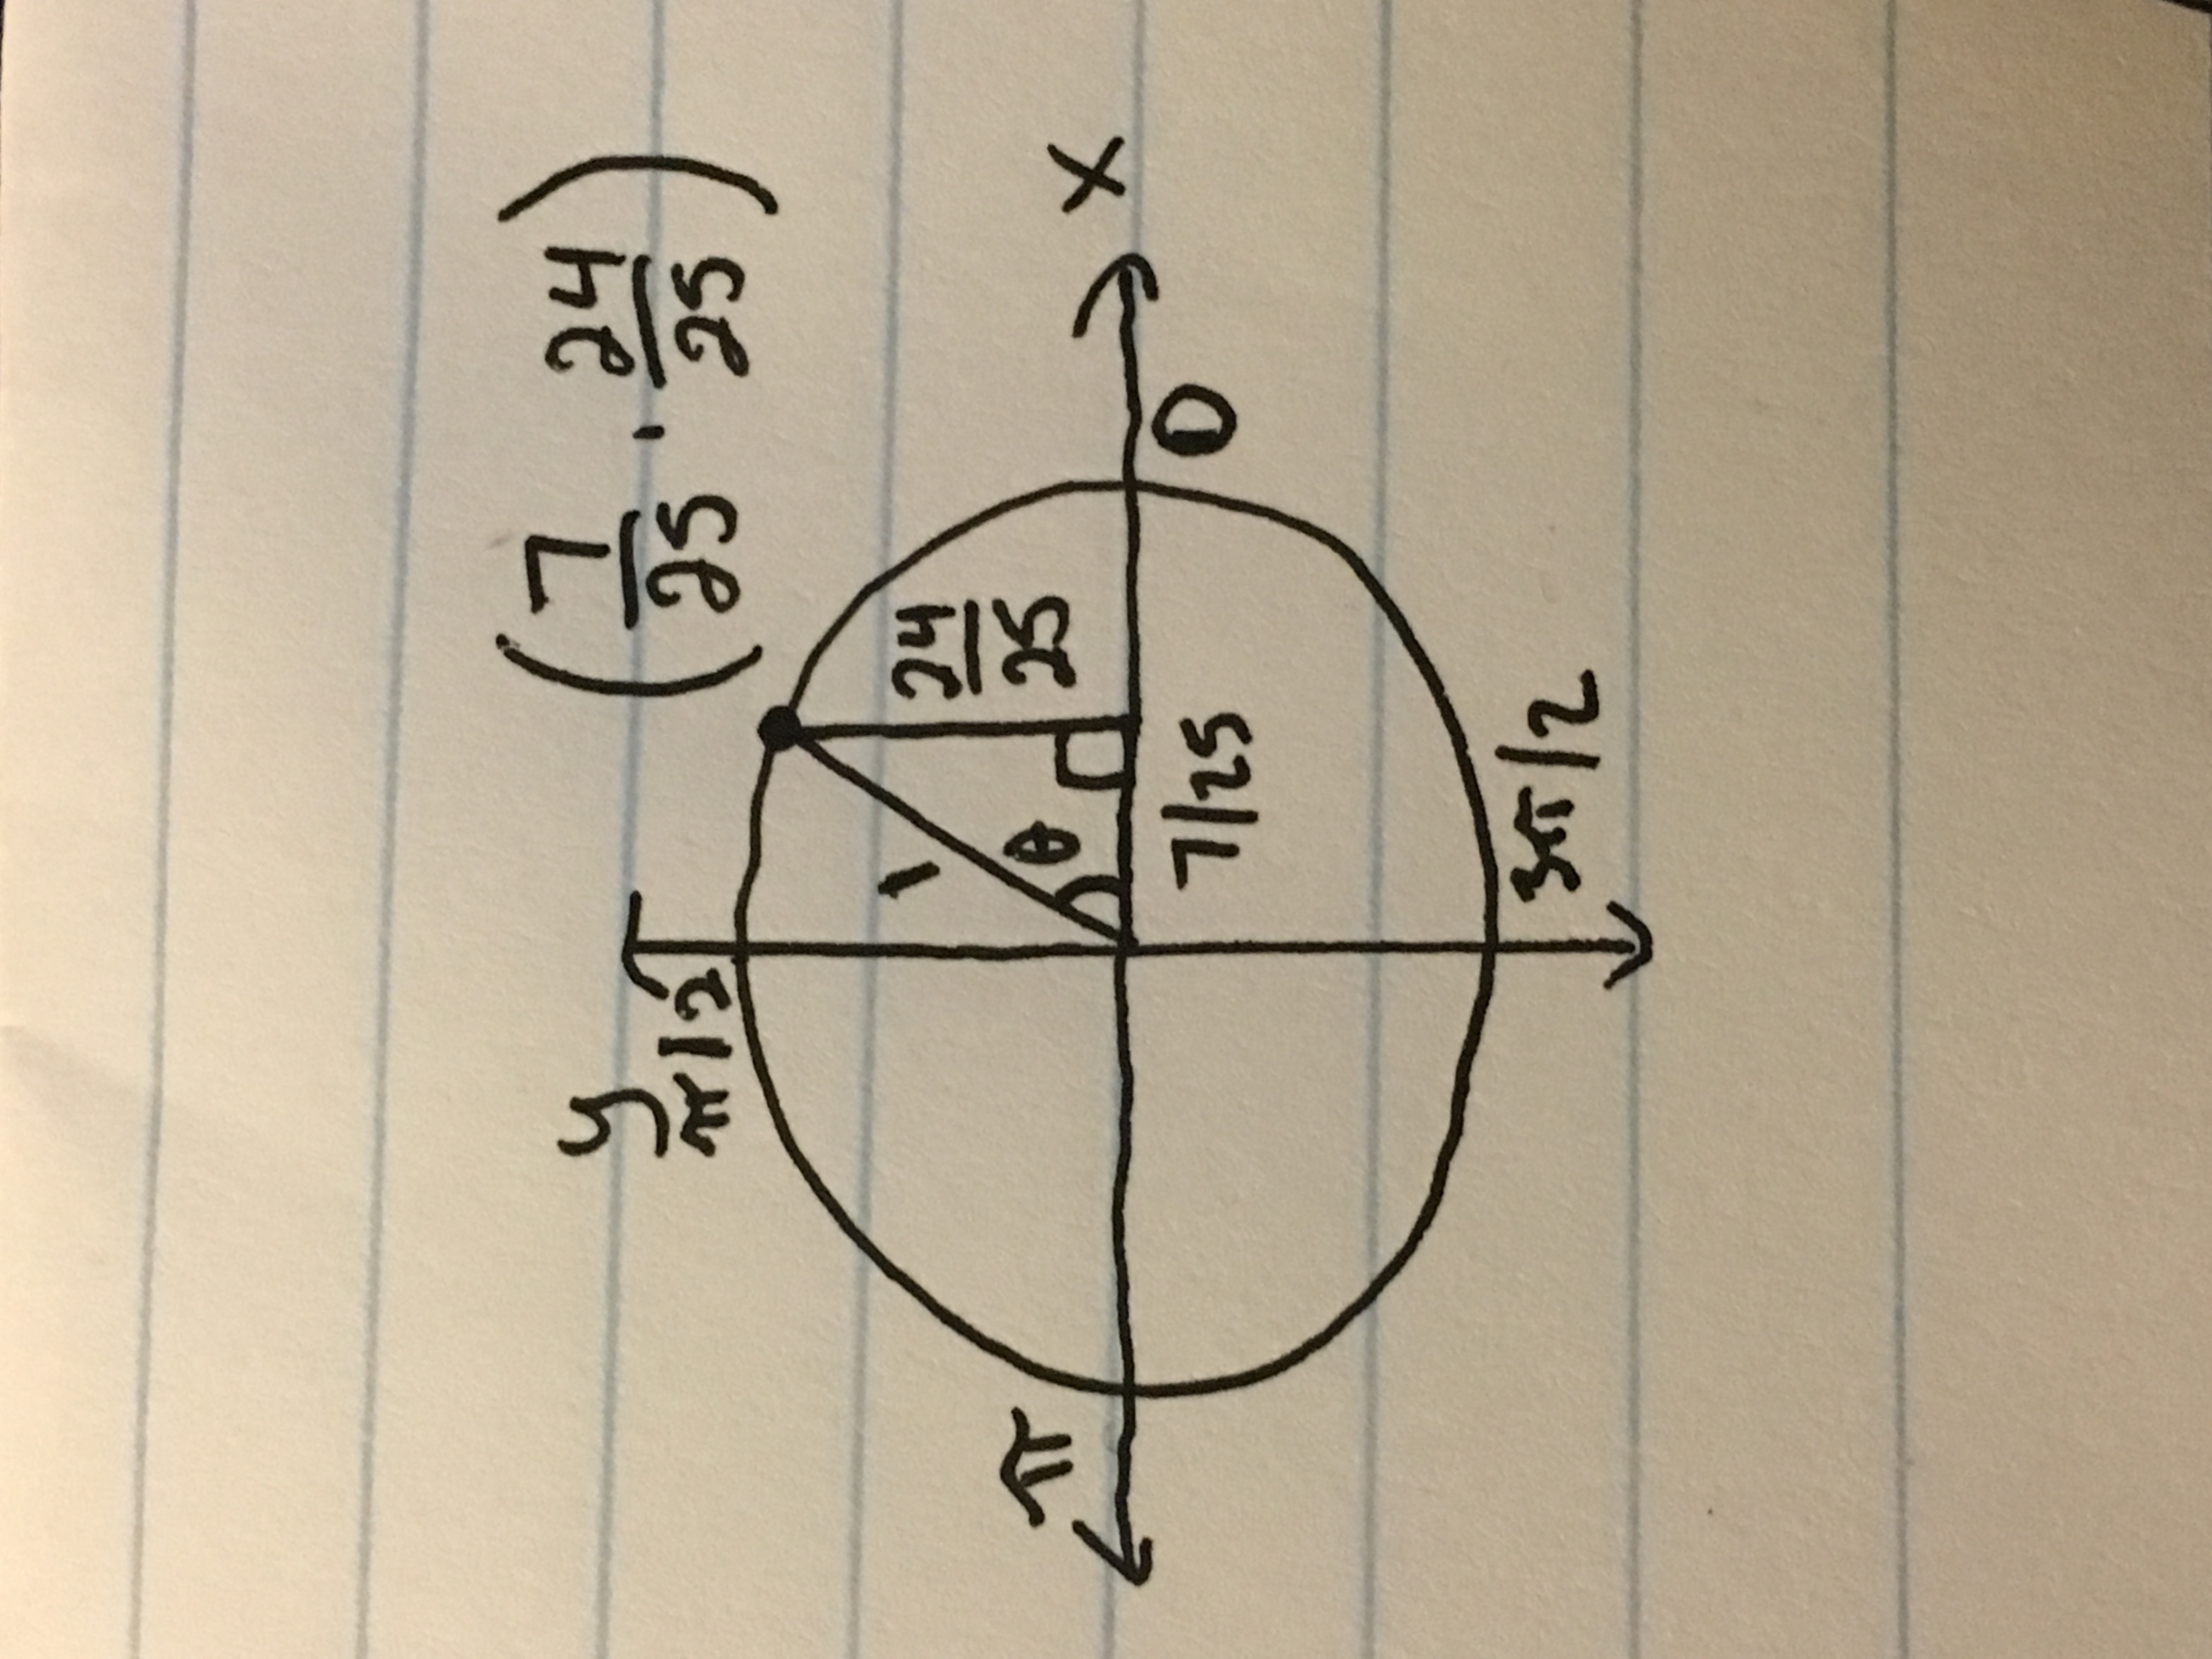 (7/25, 24/25)
y
π/2
1
24/25
θ
π
7/25
0
x
3π/2